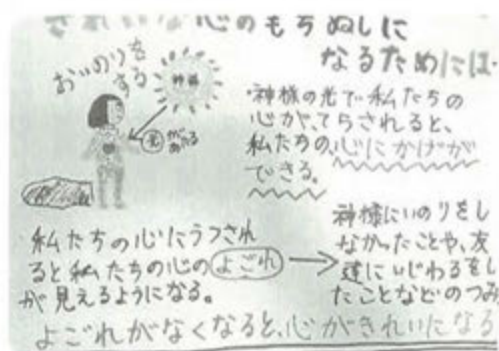 きれいな心のもちぬしに
なるためには・
おいのりを
する
神様
光
・神様の光で私たちの
心が、てらされると、
私たちの心にかげが
できる。
私たちの心にうつされ
ると私たちの心のよごれ
が見えるようになる。
神様にいのりをし
なかったことや、友
達にいじわるをし
たことなどのつみ
よごれがなくなると、心がきれいになる